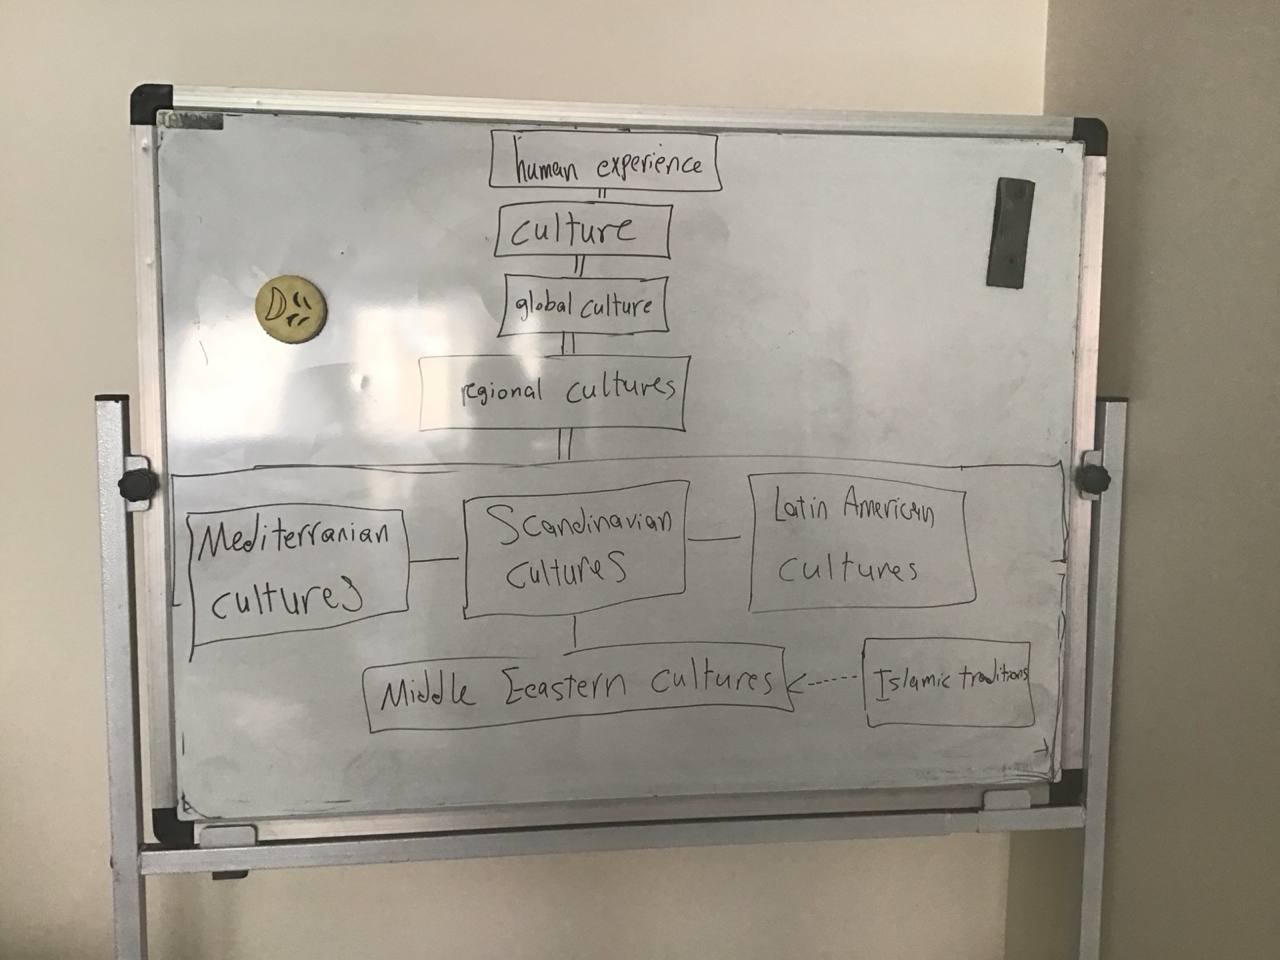 human experience
culture
global culture
regional cultures
Mediterranian
cultures
Scandinavian
cultures
Latin American
cultures
Middle Eeastern cultures
Islamic traditions